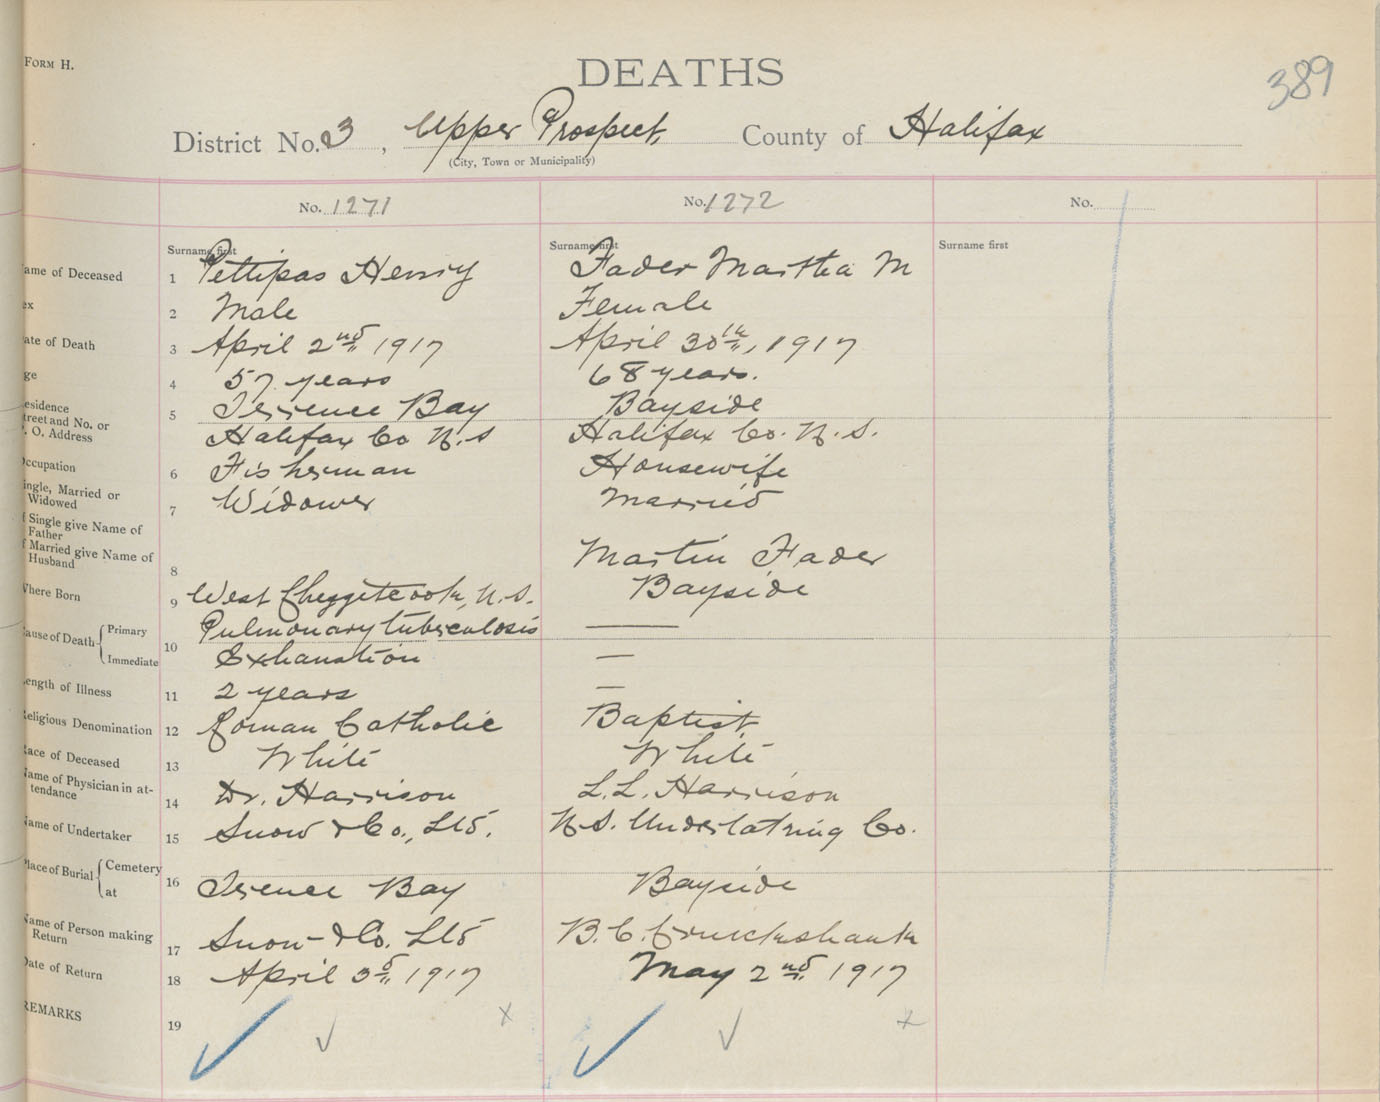 Form H.
DEATHS
389
District No. 3, Upper Prospect, County of Halifax
(City, Town or Municipality)
No. 1271
No. 1272
No.
Surname first
Surname first
Surname first
ame of Deceased 1 Pettipas Henry Fader Martha M
ex 2 Male Female
ate of Death 3 April 2nd 1917 April 30th, 1917
ge 4 57 years 68 years.
esidence
treet and No. or 5 Terrence Bay Bayside
. O. Address Halifax Co N.S Halifax Co. N.S.
ccupation 6 Fisherman Housewife
ingle, Married or
Widowed 7 Widower Married
f Single give Name of
Father
f Married give Name of
Husband 8 Martin Fader
Where Born 9 West Chezzetcook, N.S. Bayside
ause of Death Primary Pulmonary tuberculosis —
10
Immediate Exhaustion —
ength of Illness 11 2 years —
eligious Denomination 12 Roman Catholic Baptist
ace of Deceased 13 White White
ame of Physician in at-
tendance 14 Dr. Harrison L.L. Harrison
ame of Undertaker 15 Snow & Co., Ltd. N.S. Undertaking Co.
lace of Burial Cemetery
at 16 Terence Bay Bayside
ame of Person making
Return 17 Snow & Co. Ltd B.C. Cruickshank
ate of Return 18 April 3d 1917 May 2nd 1917
REMARKS 19